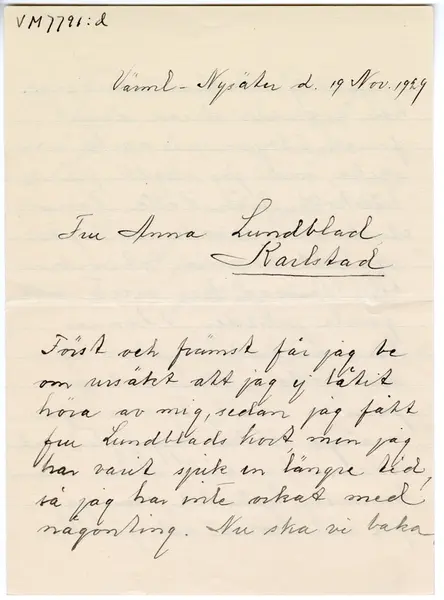 VM7791:d
Värml-Nysäter d. 19 Nov. 1929
Fru Anna Lundblad
Karlstad
Först och främst får jag be
om ursäkt att jag ej låtit
höra av mig, sedan jag fått
fru Lundblads kort, men jag
har varit sjuk en längre tid,
så jag har inte orkat med
någonting. Nu ska vi baka